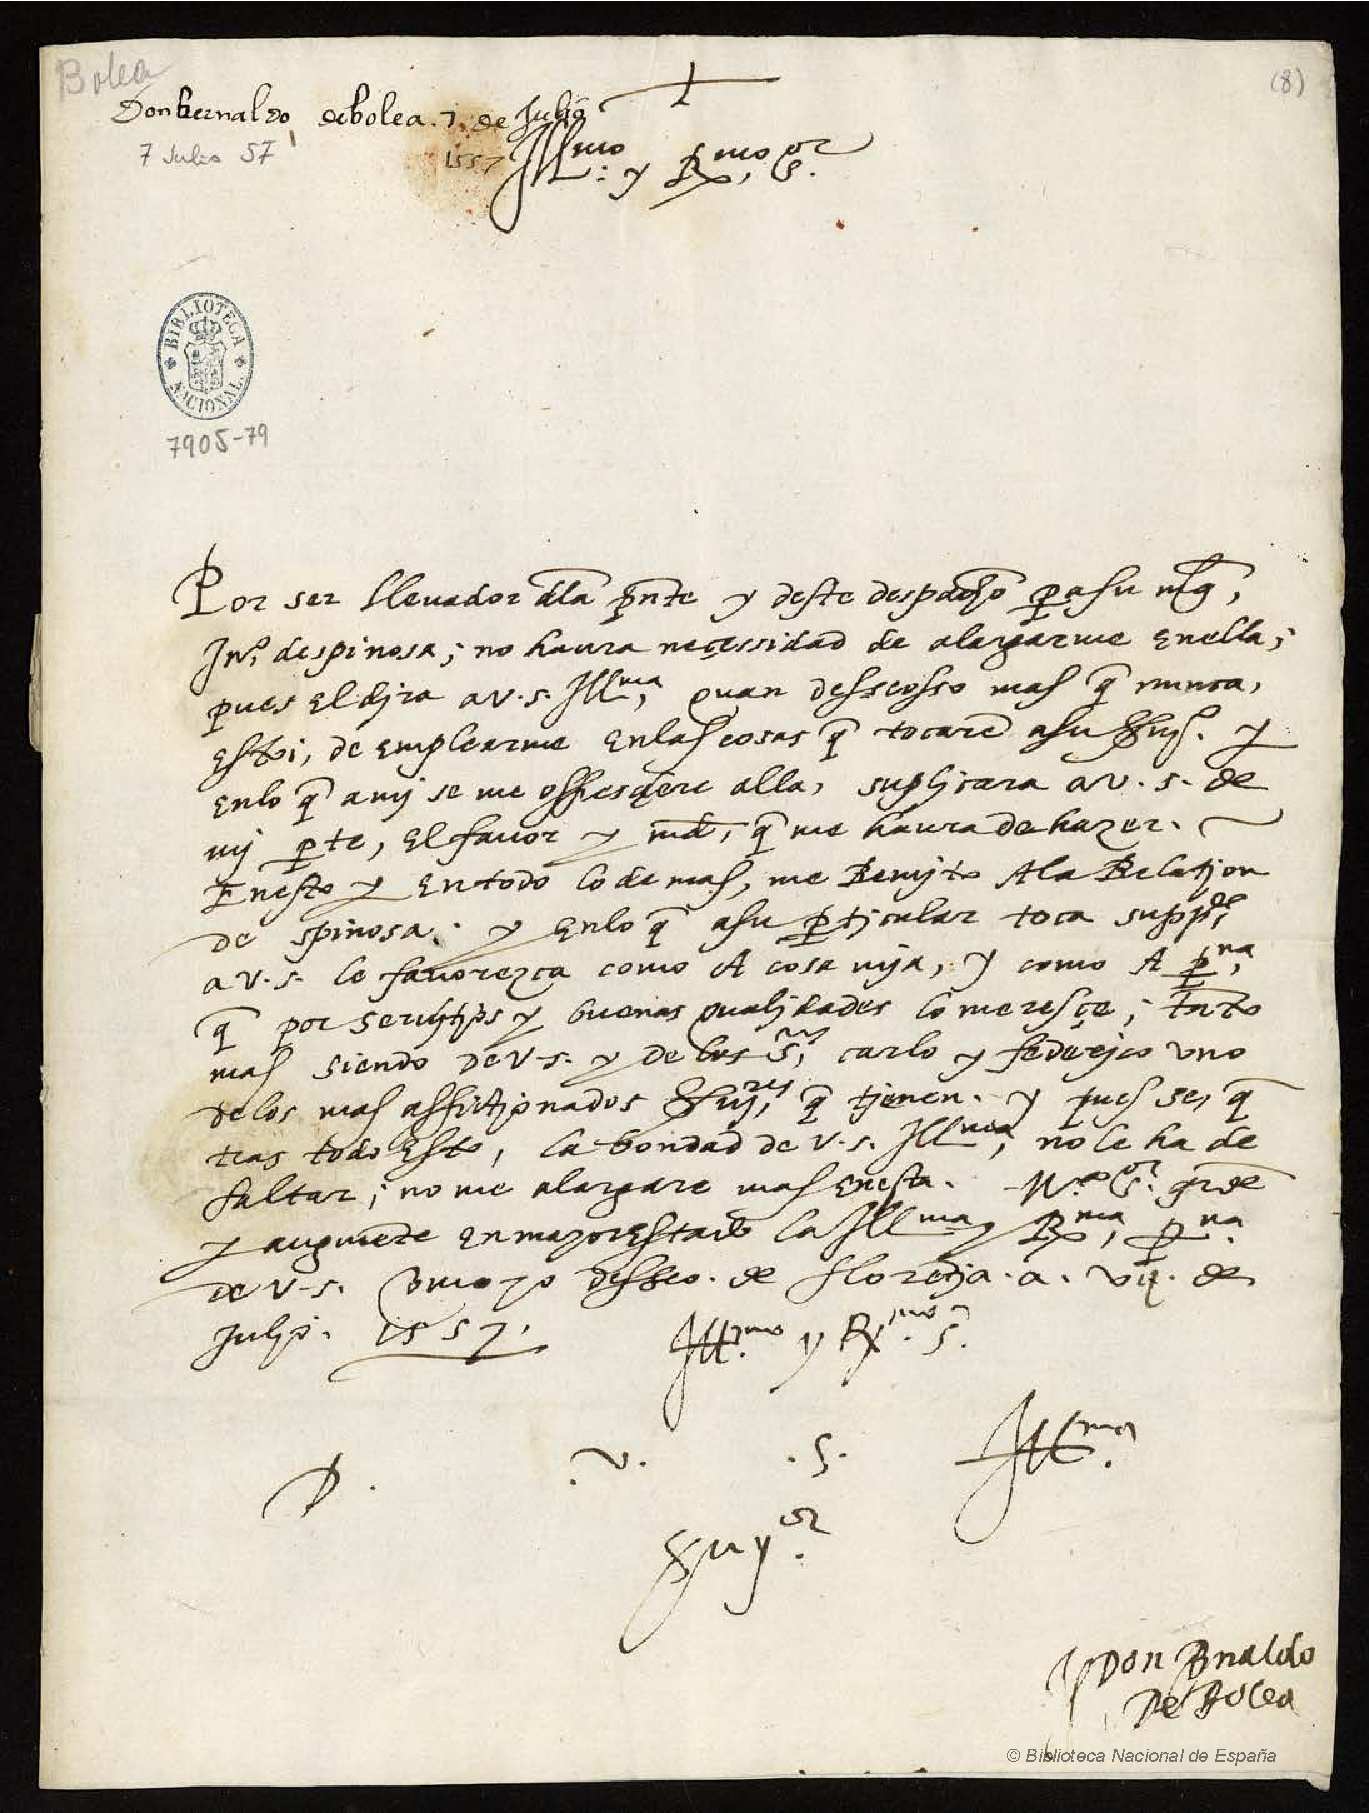 Bolea
(8)
Don bernaldo de bolea. 7. de Julio
7 Julio 57
1557
Illmo. y Rmo. Sor.
BIBLIOTECA
NACIONAL
7905-79
Por ser lleuador dla pnte y deste despacho pa su mgd,
Jno. despinosa; no haura neçessidad de alargarme enella;
pues el dira a v. s. Illma, quan desseosso mas q nunca,
estoi, de emplearme enlas cosas q tocare a su serui. y
enlo q a mj se me offresçiere alla, suplicara a v. s. de
mj pte, el fauor y md, q me haura de hazer.
Enesto y en todo lo demas, me Remjto A la Relatjon
de spinosa. y enlo q a su ptjcular toca suppco
a v. s. lo fauorezca como A cosa mja, y como A pna,
q por serujtjos y buenas qualidades lo meresçe; tanto
mas siendo de v. s. y de los Sres, carlo y federjco uno
delos mas affictjonados serujres, q tjenen. y pues se, q
tras todo esto, la bondad de v. s. Illma, no le ha de
faltar; no me alargare mas enesta. No. Sor. grde
y augmente en mayor estado la Illma y Rma, pna.
de v. s. como yo desseo. de florentja. a. vij. de
Julio. 1557.
Illmo. y Rmo. S.
D. v. s. Illma.
Seruyor.
Don Bnaldo
De Bolea
© Biblioteca Nacional de España